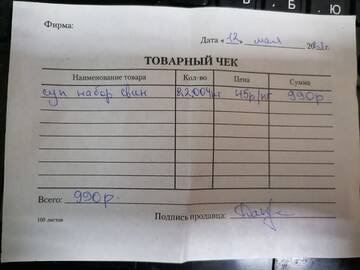 Фирма:
Дата «12» мая 20
ТОВАРНЫЙ ЧЕК
Наименование товара Кол-во Цена Сумма
суп набор свин 22,004кг 45р/кг 990р
Всего: 990р.
Подпись продавца:
100 листов